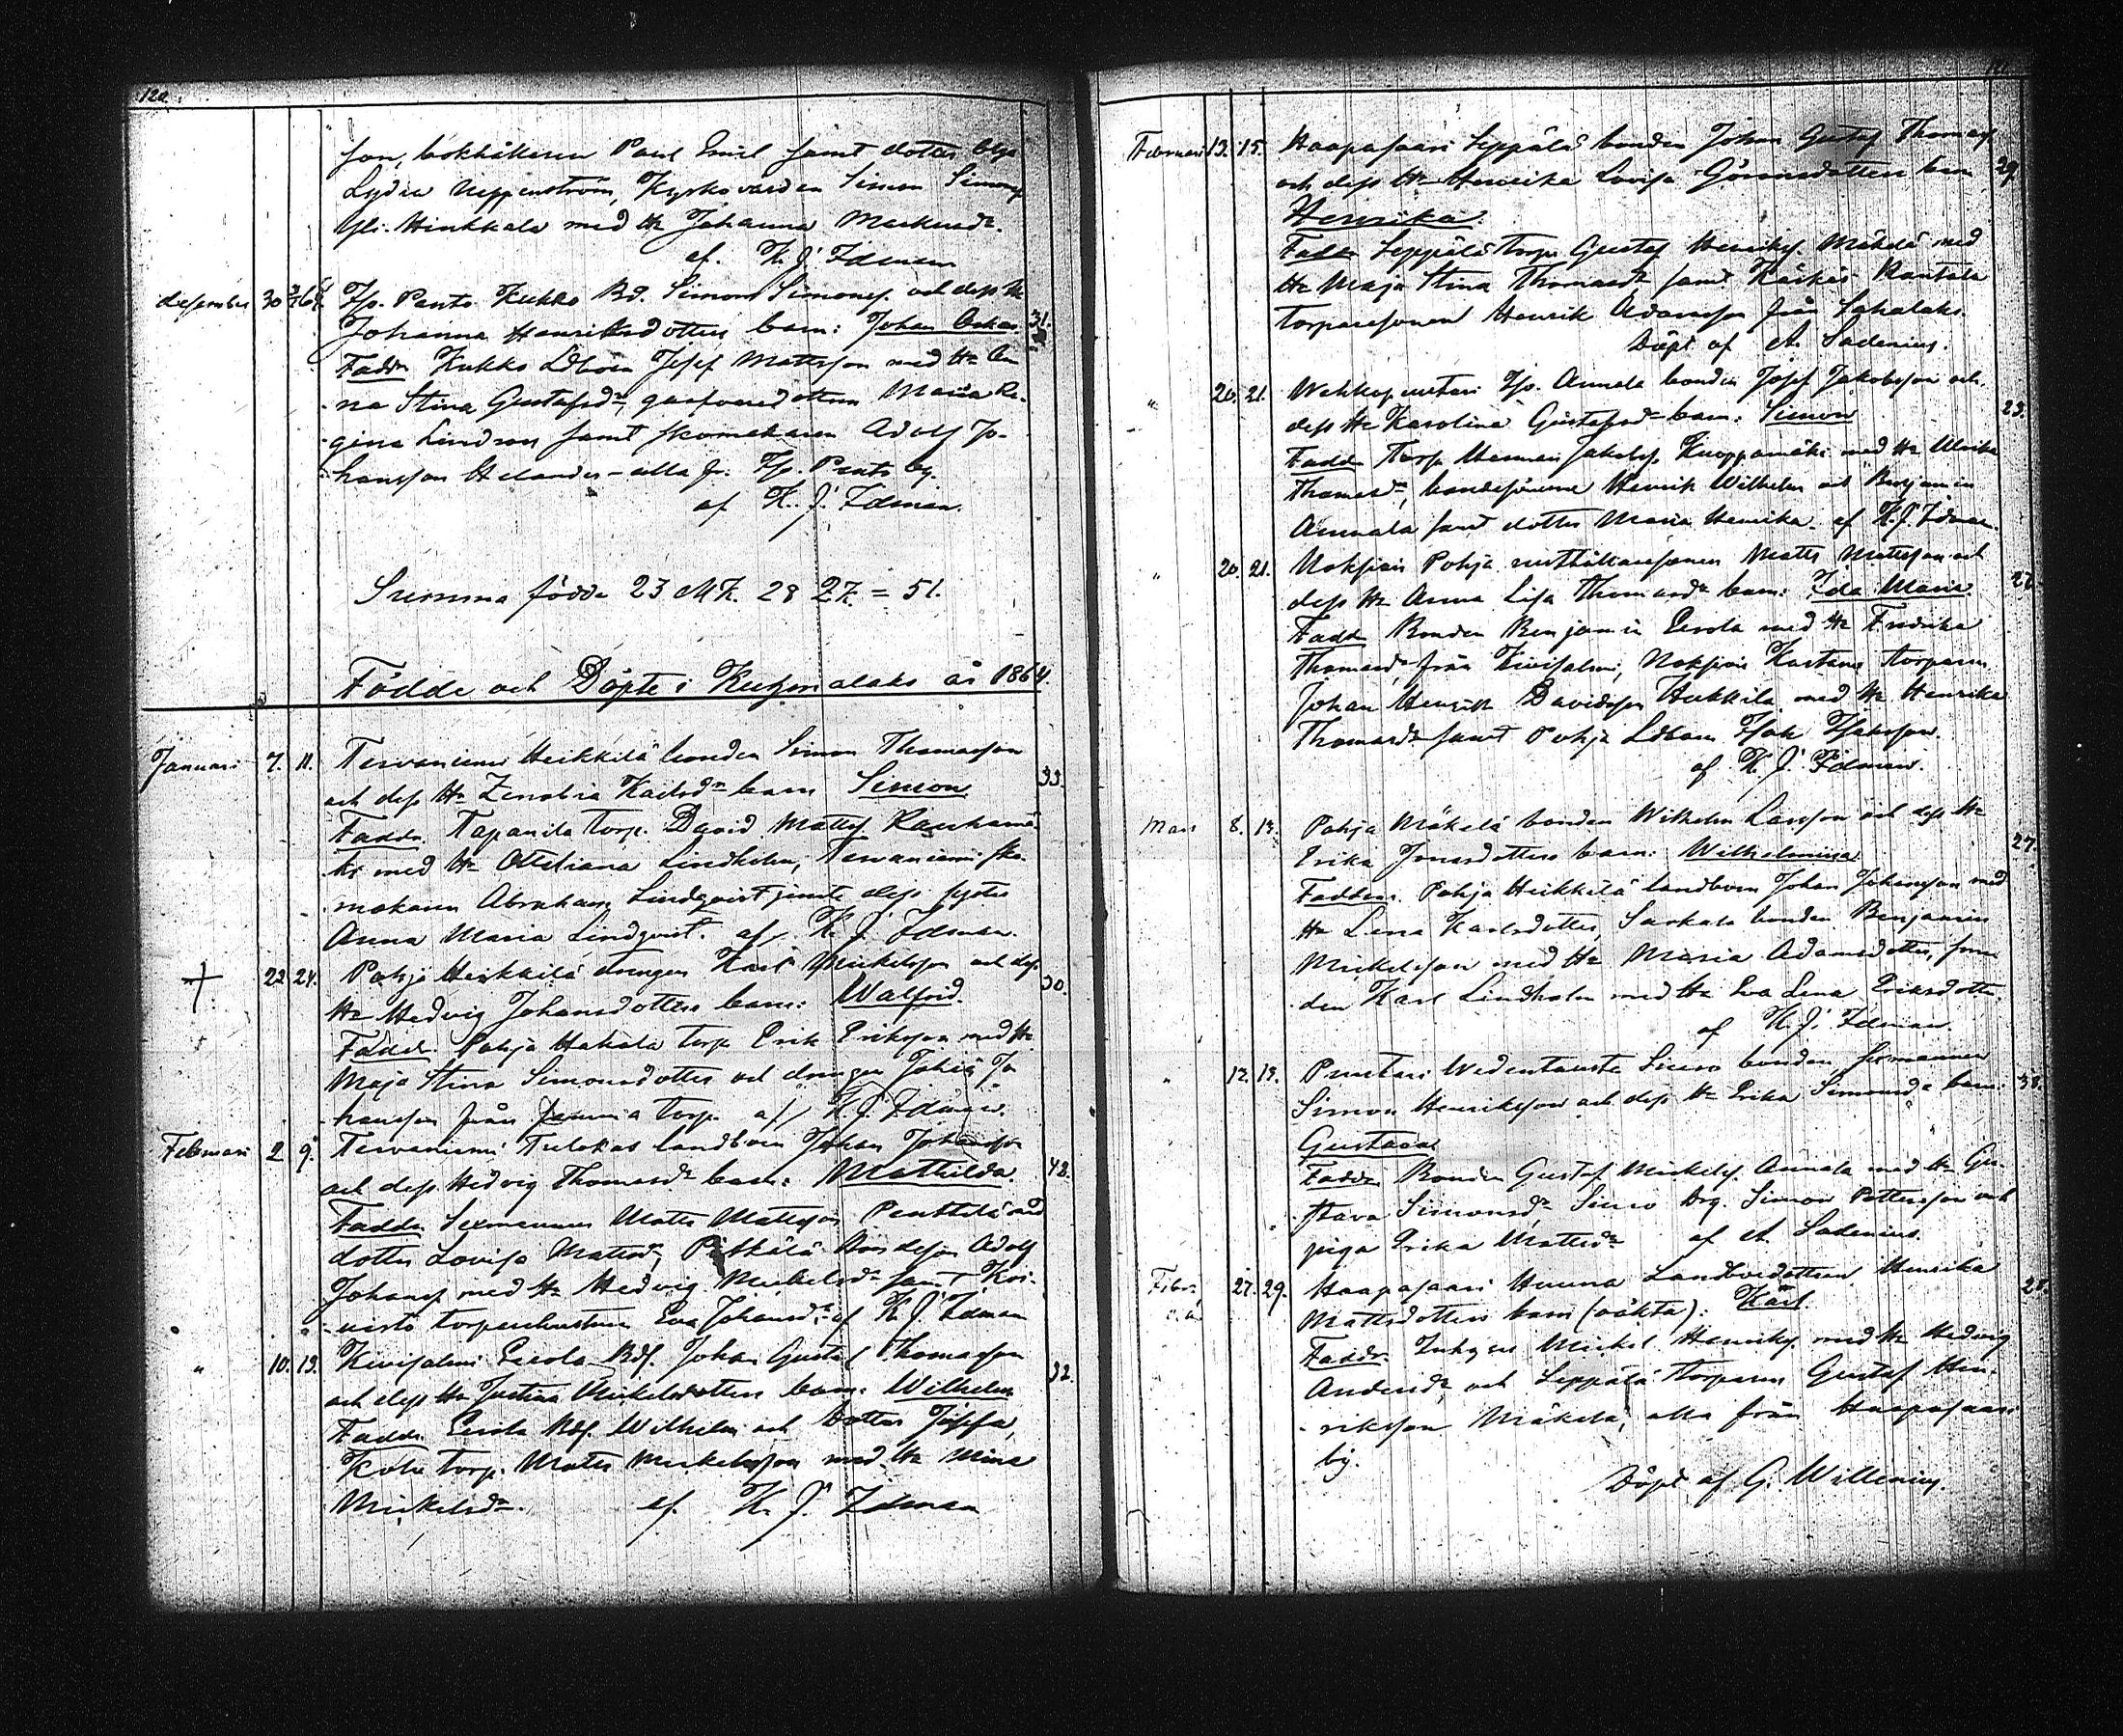 120
son, bokhållaren Paul Emil samt dotter Olga
Lydia Neppenström, Kyrkovärden Simon Simonss.
Yli-Hinkkala med H. Johanna Markusd:r
af. K. J. Idman
december 30 3/1 64. Pento Kukko Bd. Simon Simonss. och dess H.
Johanna Henriksdotters barn: Johan Oskar 31.
Fadd. Kukko Ldboen Josef Mattsson med H. An
na Stina Gustafsd:r, Maria Re-
gina Lindroos samt skomakaren Adolf Jo-
hansson Helander - alla fr. Pento by.
af K. J. Idman.
Summa födde 23 MK. 28 QK. = 51.
Födde och Döpte i Kuhmalaks år 1864.
Januari 7. 11. Tervaniemi Heikkilä bonden Simon Thomasson
och dess H. Zenobia Karlsd:r barn Simon 33.
Fadd. Tapanila Torp. David Mattss. Rauhamä
ki med H. Ottiliana Lindholm, Tervaniemi sko-
makaren Abraham Lindqvist jemte dess syster
Anna Maria Lindqvist. af K. J. Idman.
22 24. Pohja Heikkilä drengen Karl Mickelsson och dess
H. Hedvig Johansdotters barn: Walfrid. 30.
Fadd. Pohja Hakala torp. Erik Eriksson med H.
Maja Stina Simonsdotter och drengen Johan Jo
hansson från torp. af K. J. Idman.
Februari 2 9. Tervaniemi Tulokas landboen Johan Johansson
och dess Hedvig Thomasd:r barn: Mathilda. 42.
Fadd. Sexmannen Matts Mattsson Penttilä med
dotter Lovisa Mattsd:r, Pitkälä bondeson Adolf
Johanss. med H. Hedvig Mickelsd:r samt Koi-
visto torparehustrun Eva Johansd:r af K. J. Idman
" 10. 13. Kivisalmi Eerola Bds. Johan Gustaf Thomasson
och dess H. Justina Mickelsdotters barn: Wilhelm 32.
Fadd. Eerola Bds. Wilhelm och Dotter Josefa,
torp. Matts Mickelsson med H. Mina
Mickelsd:r. af. K. J. Idman
Februari 13. 15. Haapasaari Seppälä bonden Johan Gustaf Thomass.
och dess H. Henrika Lovisa Göransdotters barn 29.
Henrika
Fadd. Seppälä Torp. Gustaf Henrikss. Mäkelä med
H. Maja Stina Thomasd:r samt Käskäs Rantala
torparesonen Henrik Adamsson från Sahalaks.
Döpt af A. Sadenius.
" 20. 21. Wehkapuntari Annala bonden Josef Jakobsson och
dess H. Karolina Gustafsd:r barn: Simon 23.
Fadd. Torp. Herman Jakobss. Kuoppamäki med H. Ulrika
Thomasd:r, bondesönerna Henrik Wilhelm och Benjamin
Annala samt dotter Maria Henrika. af K. J. Idman.
" 20. 21. Pohja rusthållaresonen Matts Mattsson och
dess H. Anna Lisa Thomasd:r barn: Ida Maria
Fadd. Bonden Benjamin Eerola med H. Fredrika
Thomasd:r från Kivisalmi, torparen
Johan Henrik Davidsson Heikkilä med H. Henrika
Thomasd:r samt Pohja Ldboen Isak Isaksson.
af K. J. Idman.
Mars 8. 13. Pohja Mäkelä bonden Wilhelm Larsson och dess H.
Erika Jonasdotters barn: Wilhelmina. 27.
Faddrar. Pohja Heikkilä landboen Johan Johansson med
H. Lena Karlsdotter, Sarkala bonden Benjamin
Mickelsson med H. Maria Adamsdotter, sme
den Karl Lindholm med H. Eva Lena Eriksdotter
af K. J. Idman.
" 12. 13. Puntari Wedentausta Simo bonden Sexmannen
Simon Henriksson och dess H. Erika Simonsd:r barn: 38.
Gustava
Fadd. Bonden Gustaf Mickelss. Annala med H. Gu-
stava Simonsd:r Simo Drg. Simon Pettersson och
piga Erika Mattsd:r af A. Sadenius.
Febr. 27. 29. Haapasaari Landboedottren Henrika
Mattsdotters barn (oäkta): Karl. 25.
Fadd. Inhyses Mickel Henrikss. med H. Hedvig
Andersd:r och Seppälä Torparen Gustaf Hen-
riksson Mäkelä, alla från Haapasaari
by.
Döpt af G. Willenius.